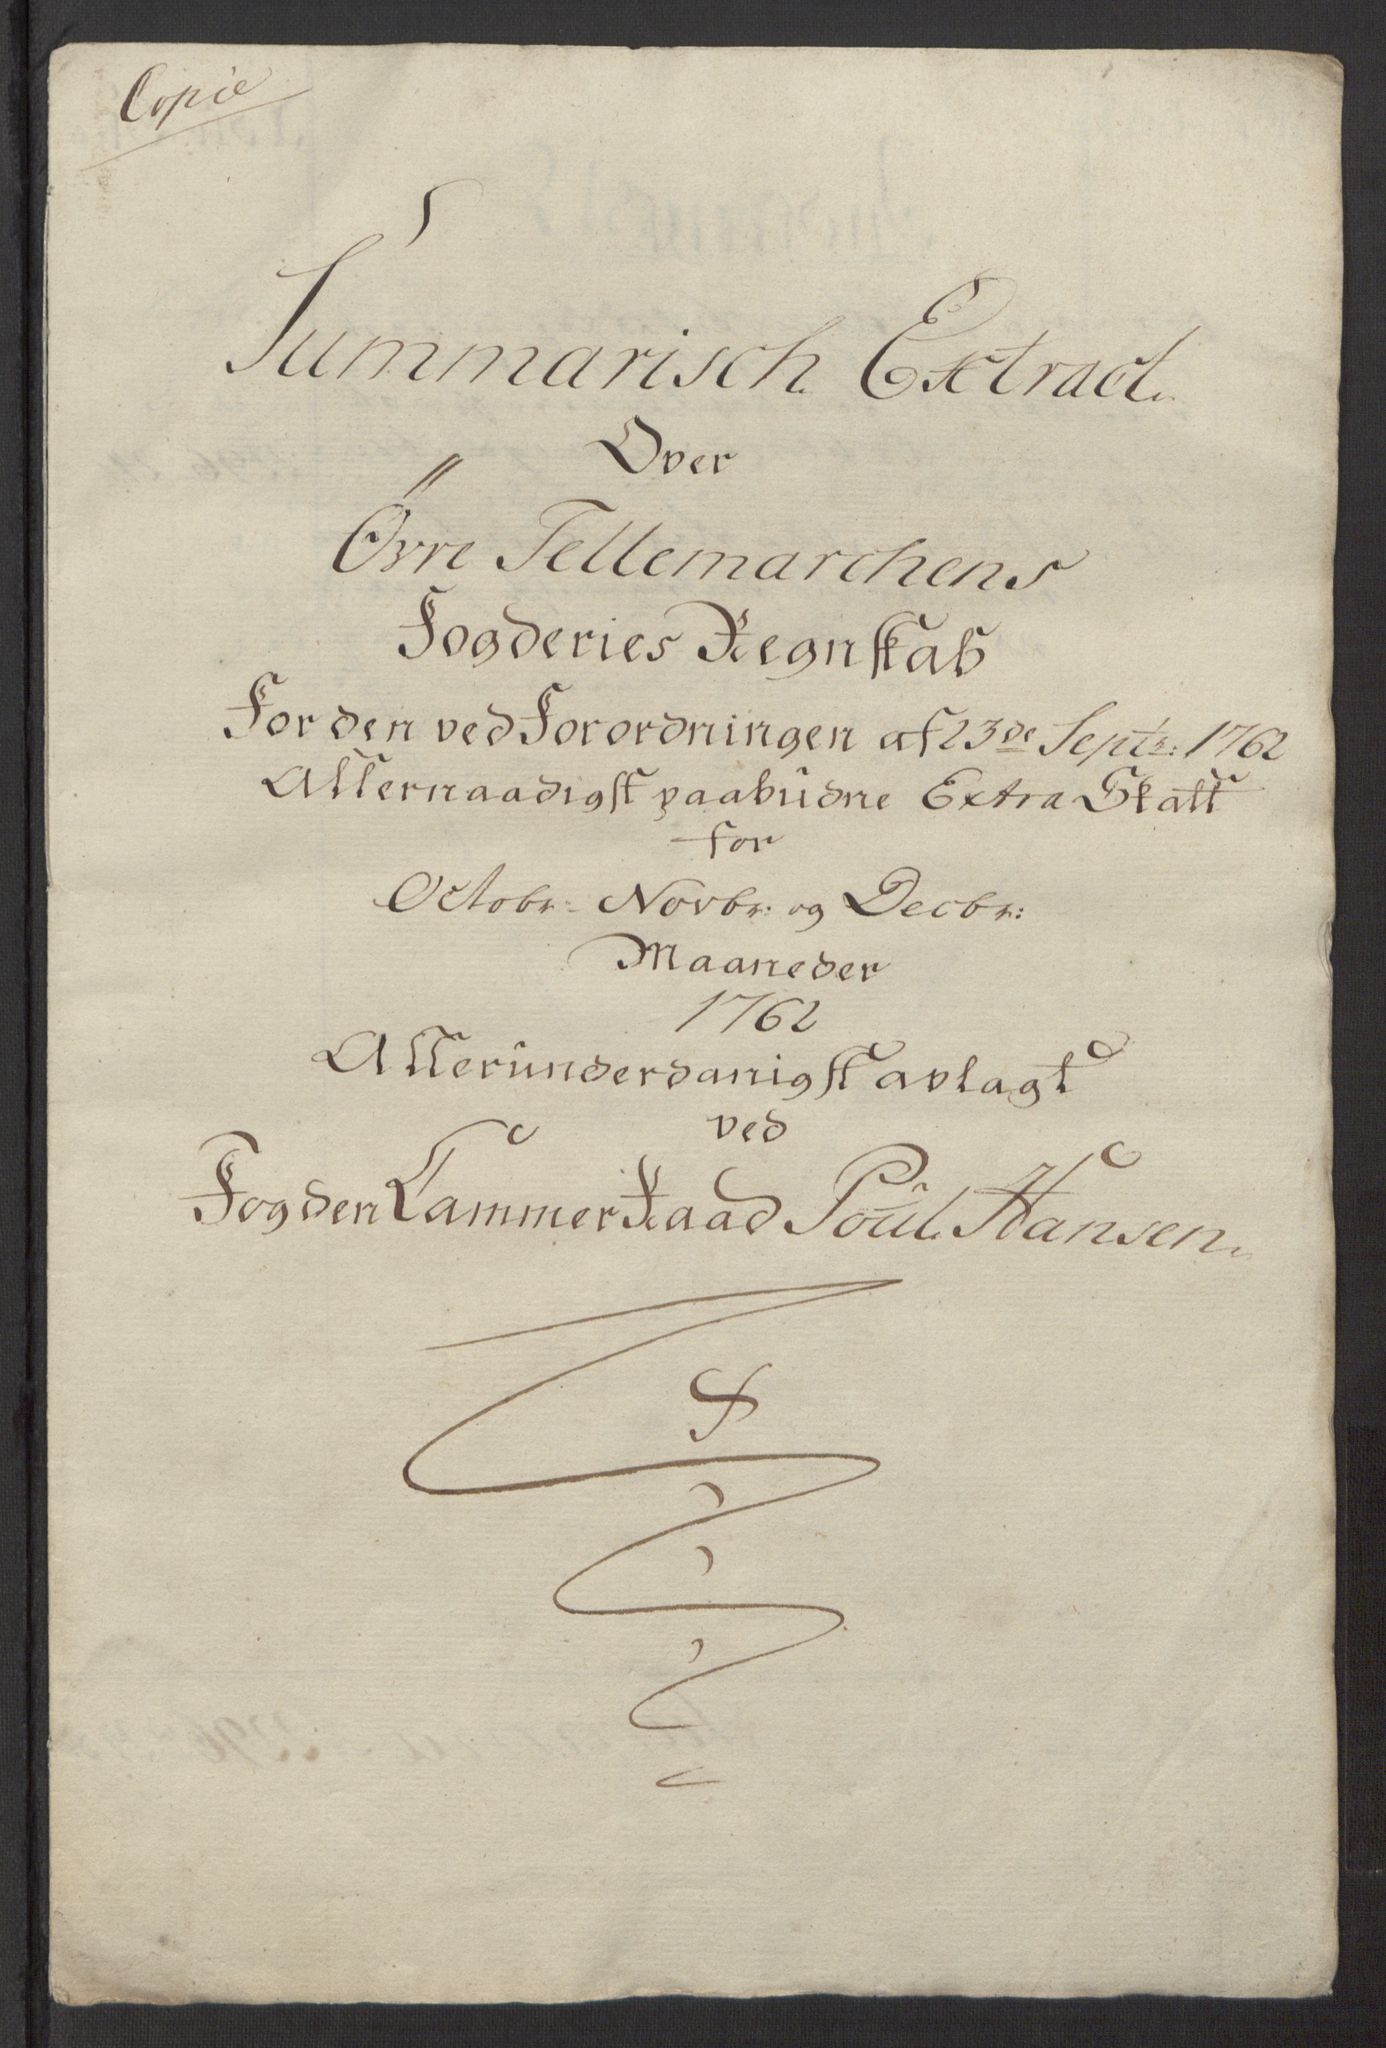 Copie
Summarisch Extract
Over
Øvre Tellemarchens
Fogderies Regnskab
For den ved Forordningen af 23de Septr: 1762
Allernaadigst paabudne Extra Skatt
for
Octobr: Novbr: og Decbr:
Maaneder
1762
Allerunderdanigst avlagt
ved
Fogden Cammer Raad Poul Hansen.